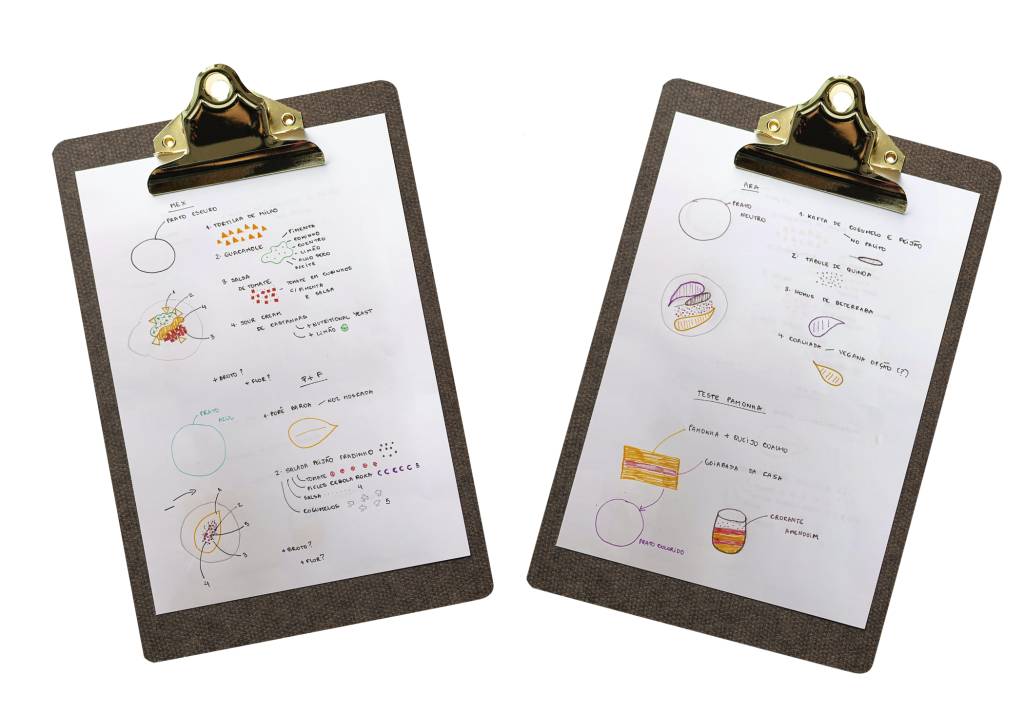 MEX
PRATO ESCURO
1. TORTILHA DE MILHO
2. GUACAMOLE
PIMENTA
COMINHO
COENTRO
LIMÃO
ALHO
AZEITE
3. SALSA
DE TOMATE
TOMATE EM CUBINHOS
C/ PIMENTA
E SALSA
4. SOUR CREAM
DE CASTANHAS
+ NUTRITIONAL YEAST
+ LIMÃO
1
2
4
3
+ BROTO?
+ FLOR?
PRATO
AZUL
PURÊ BAROA
NOZ MOSCADA
2. SALADA FEIJÃO FRADINHO
TOMATE
PICLES CEBOLA ROXA
3
SALSA
4
COGUMELOS
5
1
2
5
3
4
+ BROTO?
+ FLOR?
ARA
PRATO
NEUTRO
1. KAFTA DE COGUMELO E FEIJÃO
NO PALITO
2. TABULE DE QUINOA
3. HOMUS DE BETERRABA
4. COALHADA — VEGANA OPÇÃO (?)
TESTE PAMONHA
PAMONHA + QUEIJO COALHO
GOIABADA DA CASA
PRATO COLORIDO
CROCANTE
AMENDOIM